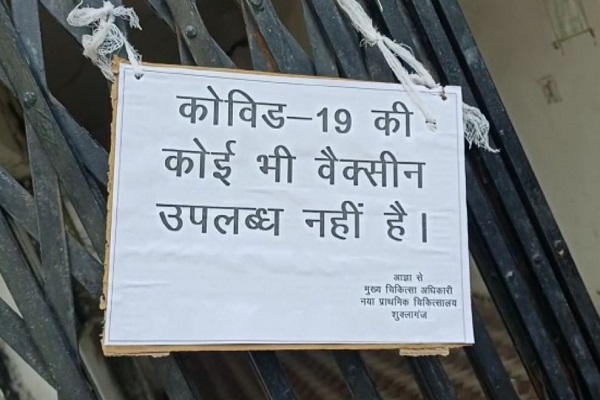 कोविड–19 की
कोई भी वैक्सीन
उपलब्ध नहीं है।
आज्ञा से
मुख्य चिकित्सा अधिकारी
नया प्राथमिक चिकित्सालय
शुक्लागंज